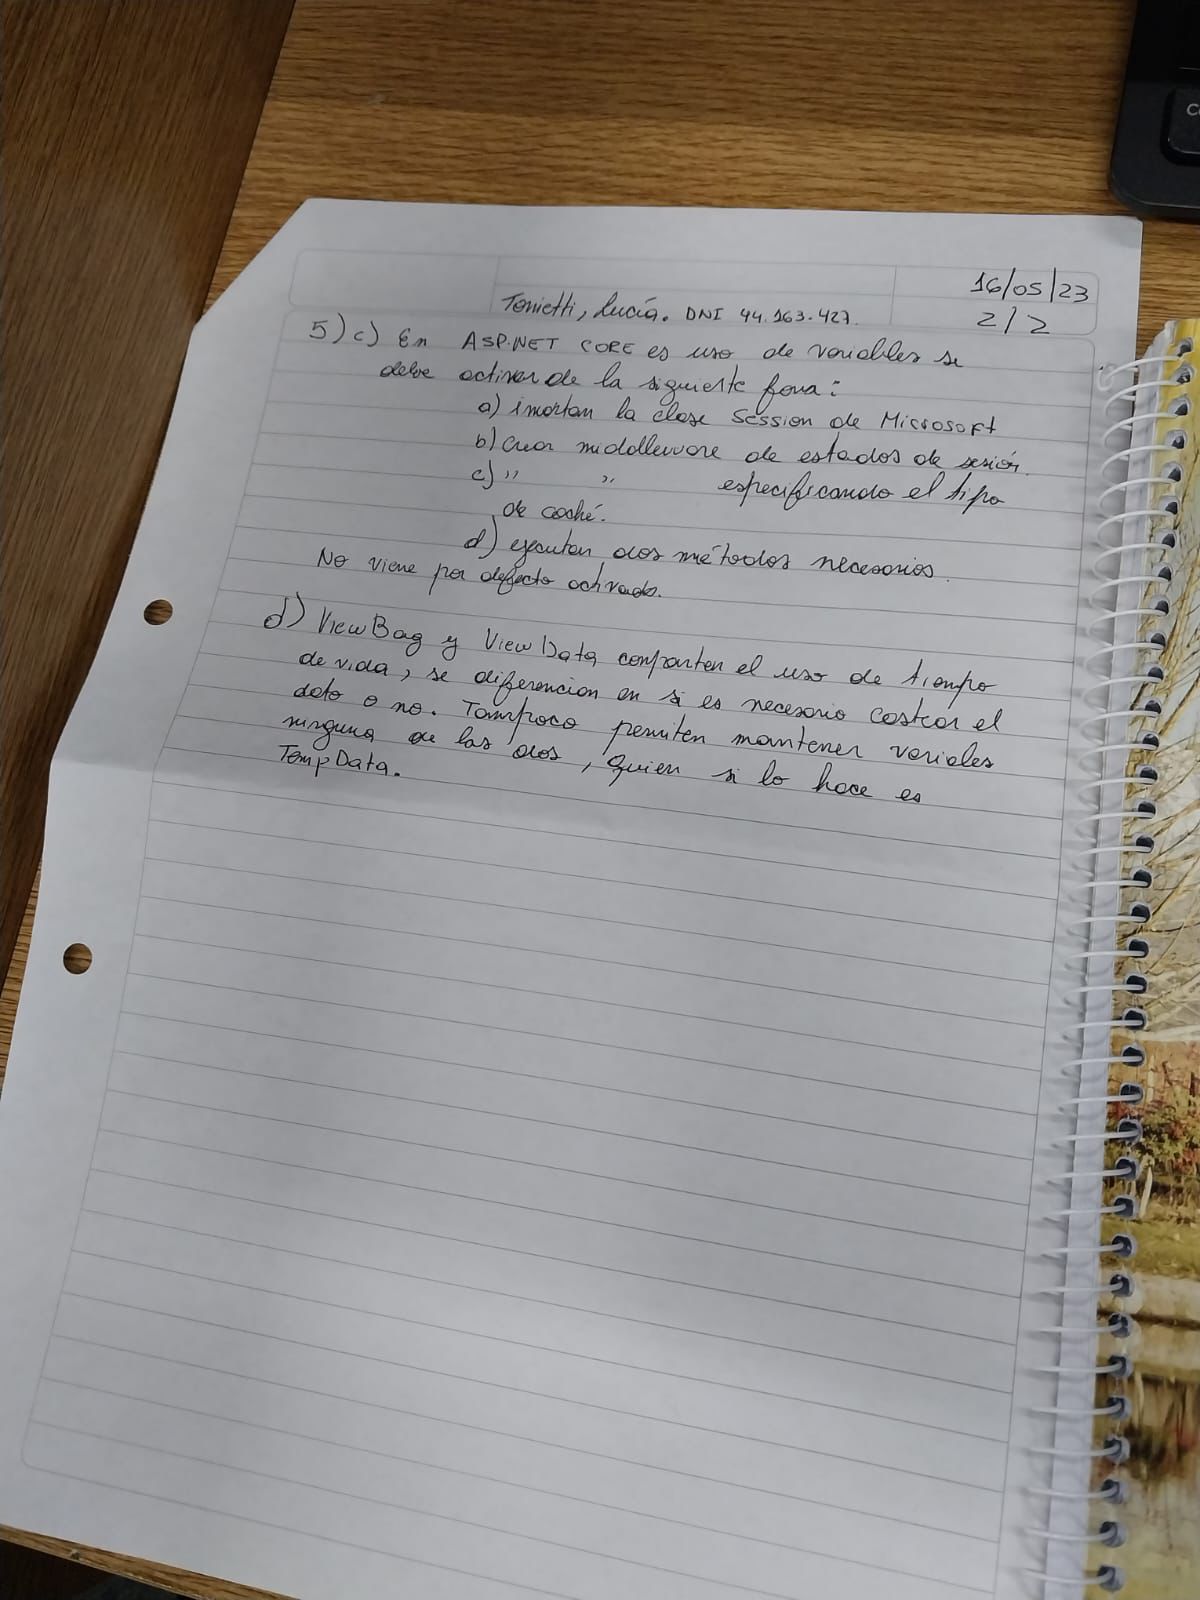 16/05/23
Tonietti, Lucía. DNI 44.163.427.
2/2
5) c) En ASP.NET CORE es uso de variables se
debe activar de la siguiente foma:
a) imortan la clase Session de Microsoft
b) crear middleware de estados de sesión.
c) " " especificando el tipo
de caché.
d) ejecutan dos métodos necesarios.
No viene por defecto activado.
d) ViewBag y ViewData comparten el uso de tiempo
de vida, se diferencian en si es necesario castear el
dato o no. Tampoco permiten mantener variables
ninguna de las dos, quien si lo hace es
TempData.